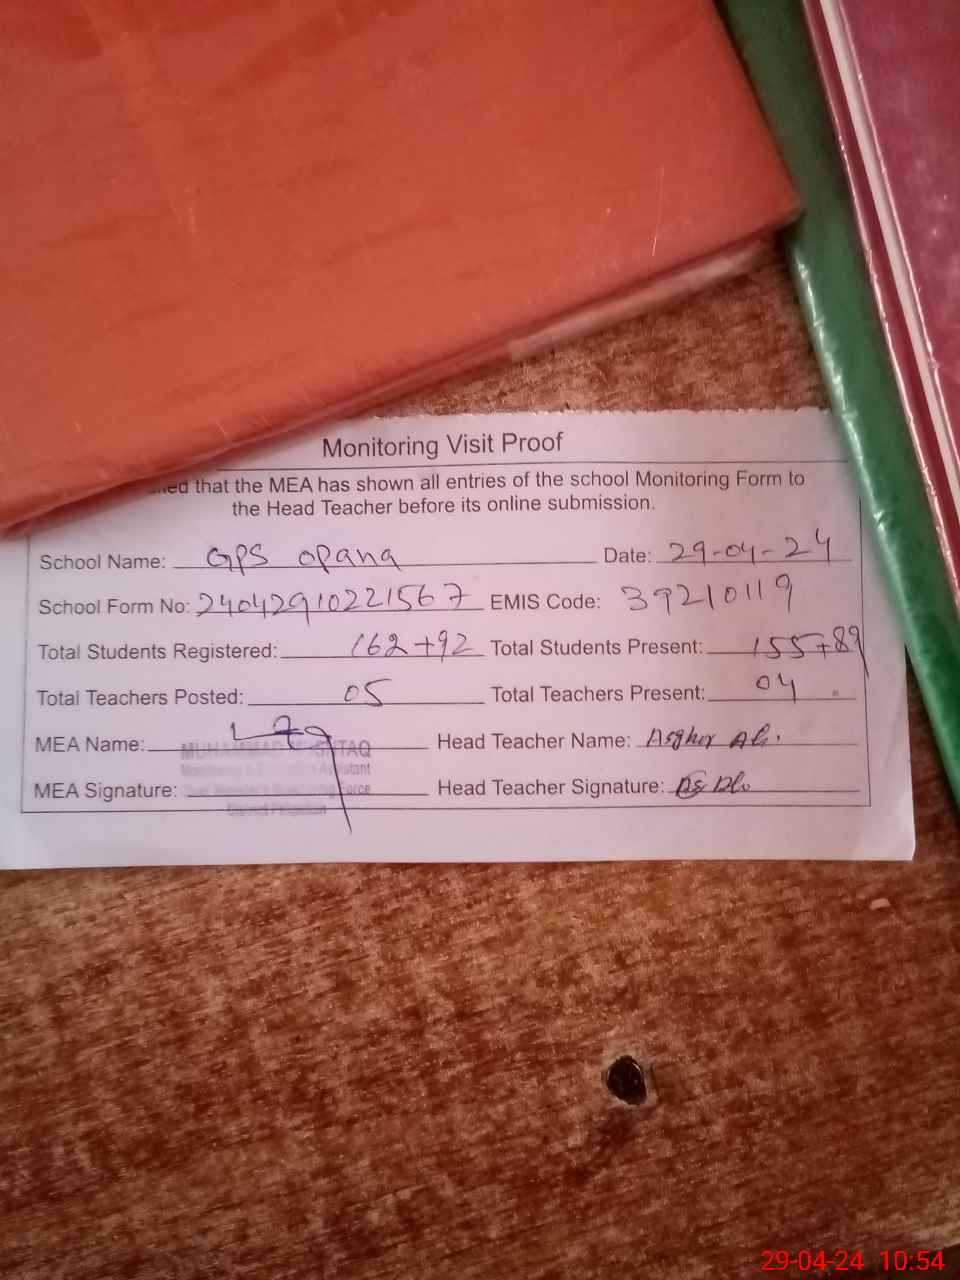 Monitoring Visit Proof
that the MEA has shown all entries of the school Monitoring Form to
the Head Teacher before its online submission.
School Name: GPS opana Date: 29-04-24
School Form No: 24042910221567 EMIS Code: 39210119
Total Students Registered: 162+92 Total Students Present: 155+89
Total Teachers Posted: 05 Total Teachers Present: 04
MEA Name: MUHAMMAD MUSHTAQ Head Teacher Name: Asghar Ali.
Monitoring & Evaluation Assistant
MEA Signature: Force Head Teacher Signature:
District
29-04-24 10:54